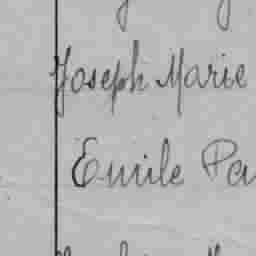 Joseph Marie
Emile